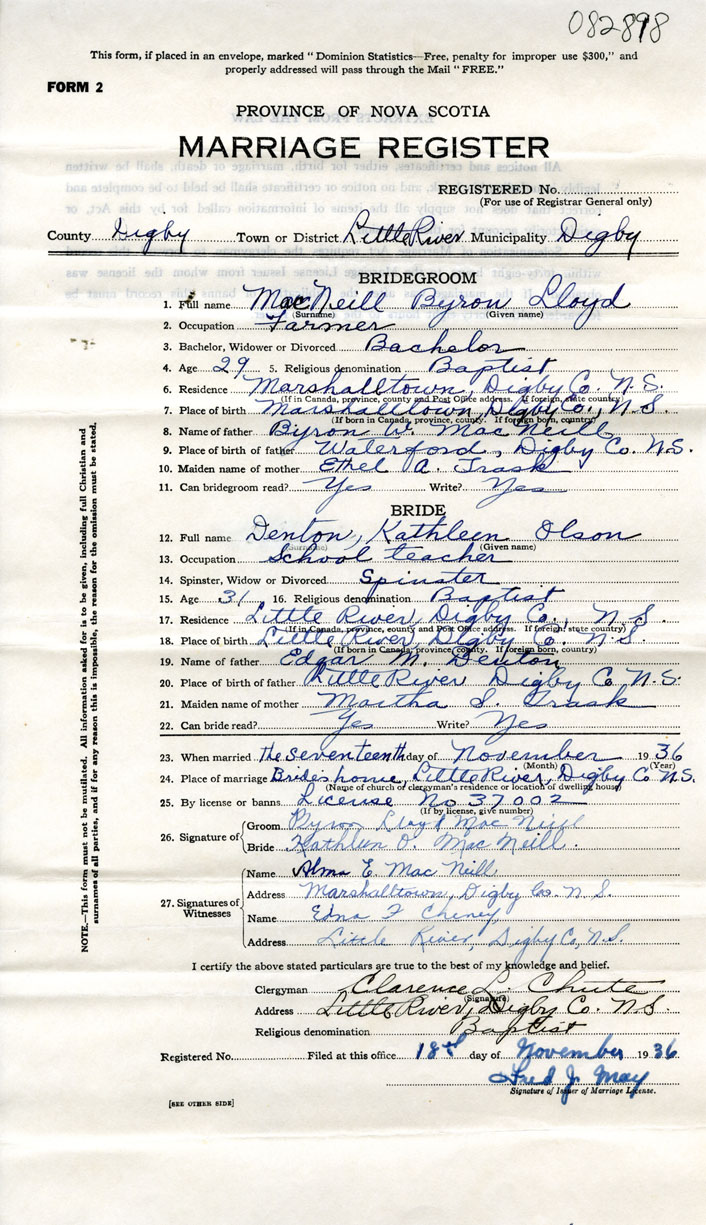 082898
This form, if placed in an envelope, marked "Dominion Statistics—Free, penalty for improper use $300," and
properly addressed will pass through the Mail "FREE."
FORM 2
PROVINCE OF NOVA SCOTIA
MARRIAGE REGISTER
REGISTERED No.
(For use of Registrar General only)
County Digby Town or District Little River Municipality Digby
BRIDEGROOM
1. Full name MacNeill Byron Lloyd
(Surname) (Given name)
2. Occupation Farmer
3. Bachelor, Widower or Divorced Bachelor
4. Age 29 5. Religious denomination Baptist
6. Residence Marshalltown, Digby Co. N.S.
(If in Canada, province, county and Post Office address. If foreign, state country)
7. Place of birth Marshalltown, Digby Co., N.S.
(If born in Canada, province, county. If foreign born, country)
8. Name of father Byron W. MacNeill
9. Place of birth of father Waterford, Digby Co. N.S.
10. Maiden name of mother Ethel A. Trask
11. Can bridegroom read? Yes Write? Yes
BRIDE
12. Full name Denton, Kathleen Olson
(Surname) (Given name)
13. Occupation School teacher
14. Spinster, Widow or Divorced Spinster
15. Age 31 16. Religious denomination Baptist
17. Residence Little River, Digby Co., N.S.
(If in Canada, province, county and Post Office address. If foreign, state country)
18. Place of birth Little River, Digby Co. N.S.
(If born in Canada, province, county. If foreign born, country)
19. Name of father Edgar M. Denton
20. Place of birth of father Little River Digby Co N.S.
21. Maiden name of mother Martha S. Trask
22. Can bride read? Yes Write? Yes
23. When married the seventeenth day of November 1936
(Month) (Year)
24. Place of marriage Brides home, Little River, Digby Co N.S.
(Name of church or clergyman's residence or location of dwelling house)
25. By license or banns License No 37002
(If by license, give number)
26. Signature of
Groom Byron Lloyd MacNeill
Bride Kathleen O. MacNeill.
27. Signatures of Witnesses
Name Alma E. MacNeill
Address Marshalltown, Digby Co. N.S.
Name Edna F Cheney
Address Little River, Digby Co, N.S.
I certify the above stated particulars are true to the best of my knowledge and belief.
Clergyman Clarence L. Chute
(Signature)
Address Little River, Digby Co. N.S.
Religious denomination Baptist
Registered No. Filed at this office 18th day of November 1936
Fred J. May
Signature of Issuer of Marriage License.
[SEE OTHER SIDE]
NOTE.—This form must not be mutilated. All information asked for is to be given, including full Christian and
surnames of all parties, and if for any reason this is impossible, the reason for the omission must be stated.